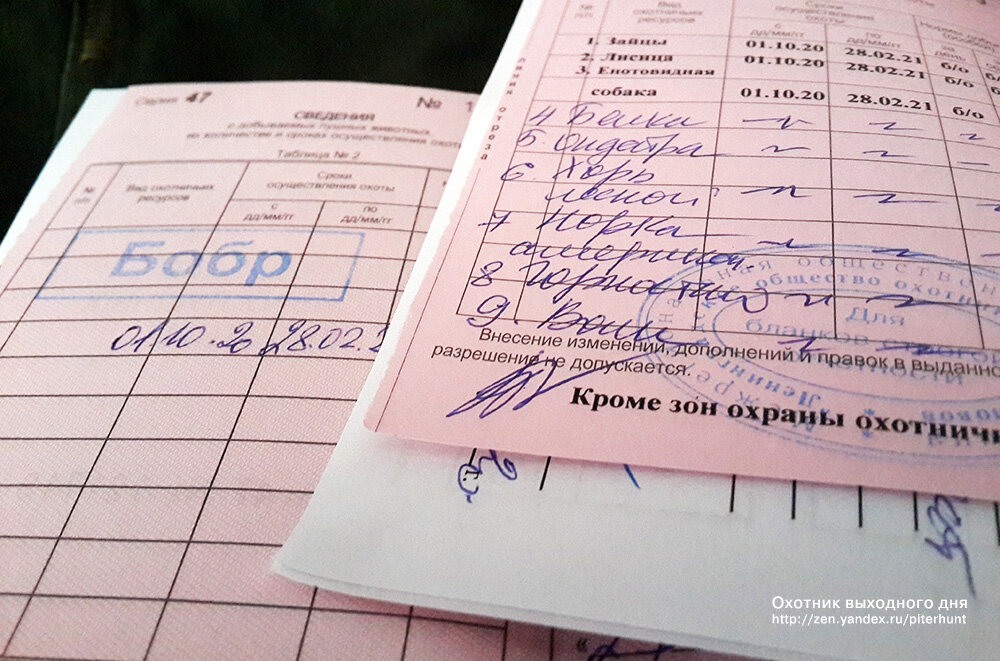 Серия 47
№ 1
СВЕДЕНИЯ
о добываемых пушных животных,
их количестве и сроках осуществления охоты
Таблица № 2
№ п/п
Вид охотничьих ресурсов
Сроки осуществления охоты
с дд/мм/гг
по дд/мм/гг
Бобр
01.10.20 28.02.2
линия отреза
№ п/п
Вид охотничьих ресурсов
Сроки осуществления охоты
с дд/мм/гг
по дд/мм/гг
за день
1. Зайцы 01.10.20 28.02.21 б/о
2. Лисица 01.10.20 28.02.21 б/о
3. Енотовидная
собака 01.10.20 28.02.21 б/о
4 Белка
5 Ондатра
6. Хорь
лесной
7 Норка
американ.
8 Горностай
9. Волк
Внесение изменений, дополнений и правок в выданно
разрешение не допускается.
Кроме зон охраны охотничь
Для
бланков строгой
отчетности
Охотник выходного дня
http://zen.yandex.ru/piterhunt